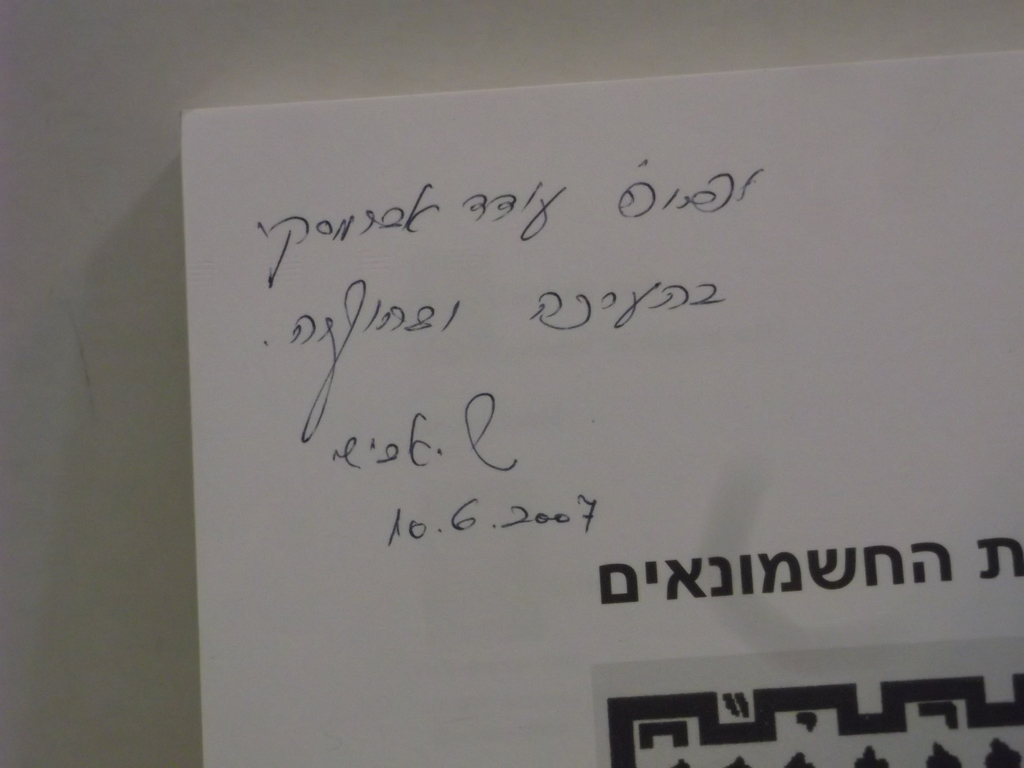 לפרופ' עודד אברמסקי
בהערכה ובתודה.
10.6.2007
ת החשמונאים